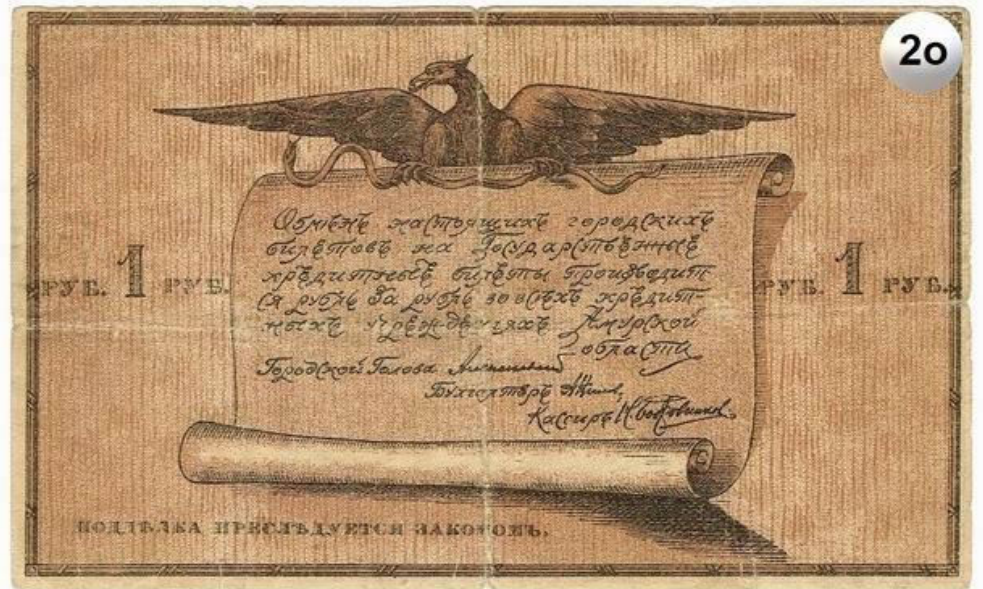 2о
Обмѣнъ настоящихъ городскихъ
билетовъ на Государственные
кредитные билеты производит-
ся рубль за рубль во всѣхъ кредит-
ныхъ учрежденіяхъ Амурской
области
РУБ. 1 РУБ.
РУБ. 1 РУБ.
Городской Голова
Бухгалтеръ
Кассиръ
ПОДДѢЛКА ПРЕСЛѢДУЕТСЯ ЗАКОНОМЪ.